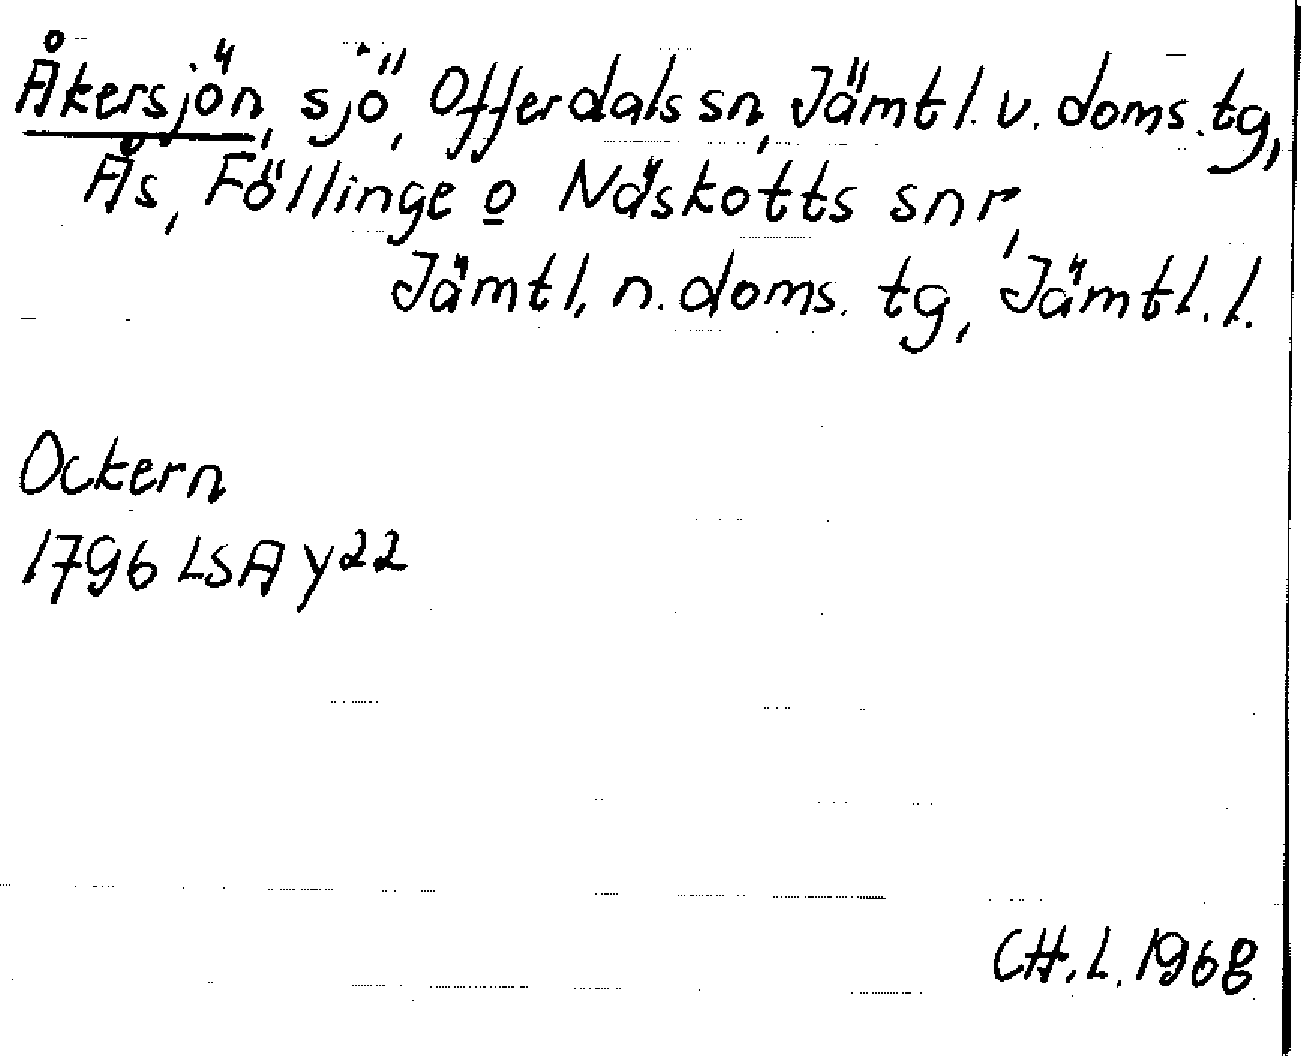 Åkersjön, sjö, Offerdals sn, Jämtl. v. doms. tg,
Ås, Föllinge o Näskotts snr,
Jämtl. n. doms. tg, Jämtl. l.
Ockern
1796 LSA y22
CH. L. 1968